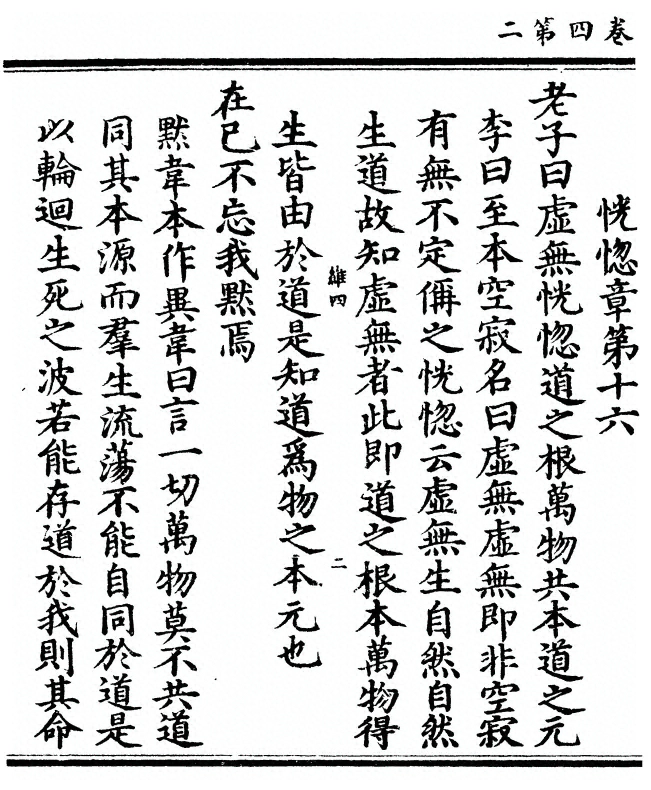 卷四第二
恍惚章第十六
老子曰虛無恍惚道之根萬物共本道之元
李曰至本空寂名曰虛無虛無即非空寂
有無不定偁之恍惚云虛無生自然自然
生道故知虛無者此即道之根本萬物得
維四
二
生皆由於道是知道爲物之本元也
在已不忘我默焉
默韋本作異韋曰言一切萬物莫不共道
同其本源而羣生流蕩不能自同於道是
以輪迴生死之波若能存道於我則其命